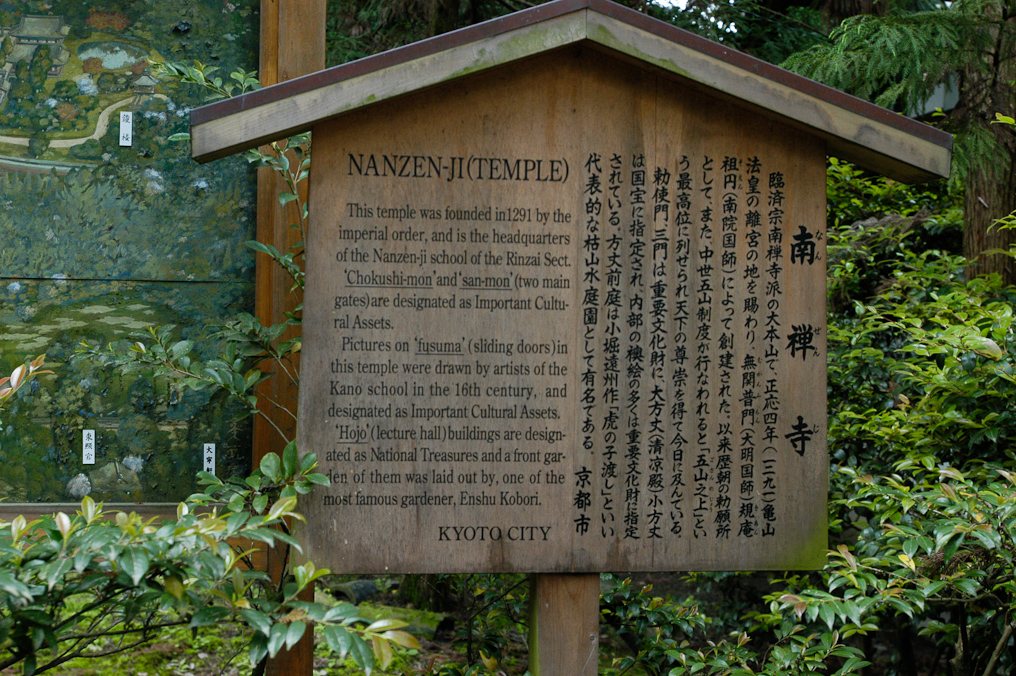 NANZEN-JI(TEMPLE)
This temple was founded in1291 by the
imperial order, and is the headquarters
of the Nanzen-ji school of the Rinzai Sect.
‘Chokushi-mon’and‘san-mon’(two main
gates)are designated as Important Cultu-
ral Assets.
Pictures on ‘fusuma’(sliding doors)in
this temple were drawn by artists of the
Kano school in the 16th century, and
designated as Important Cultural Assets.
‘Hojo’(lecture hall)buildings are design-
ated as National Treasures and a front gar-
den of them was laid out by, one of the
most famous gardener, Enshu Kobori.
KYOTO CITY
南禅寺
臨済宗南禅寺派の大本山で、正応四年(一二九一)亀山
法皇の離宮の地を賜わり、無関普門(大明国師)規庵
祖円(南院国師)によって創建された。以来歴朝の勅願所
として、また、中世五山制度が行なわれると「五山之上」とい
う最高位に列せられ天下の尊崇を得て今日に及んでいる。
勅使門、三門は重要文化財に、大方丈(清涼殿)小方丈
は国宝に指定され、内部の襖絵の多くは重要文化財に指定
されている。方丈前庭は小堀遠州作「虎の子渡し」といい
代表的な枯山水庭園として有名である。 京都市
鐘楼
東照宮